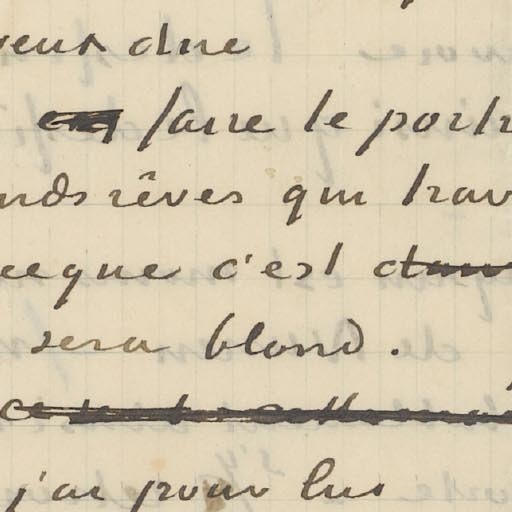 veux dire
faire le portr
nds rêves qui trav
ceque c'est dans
sera blond.
j'ai pour lui